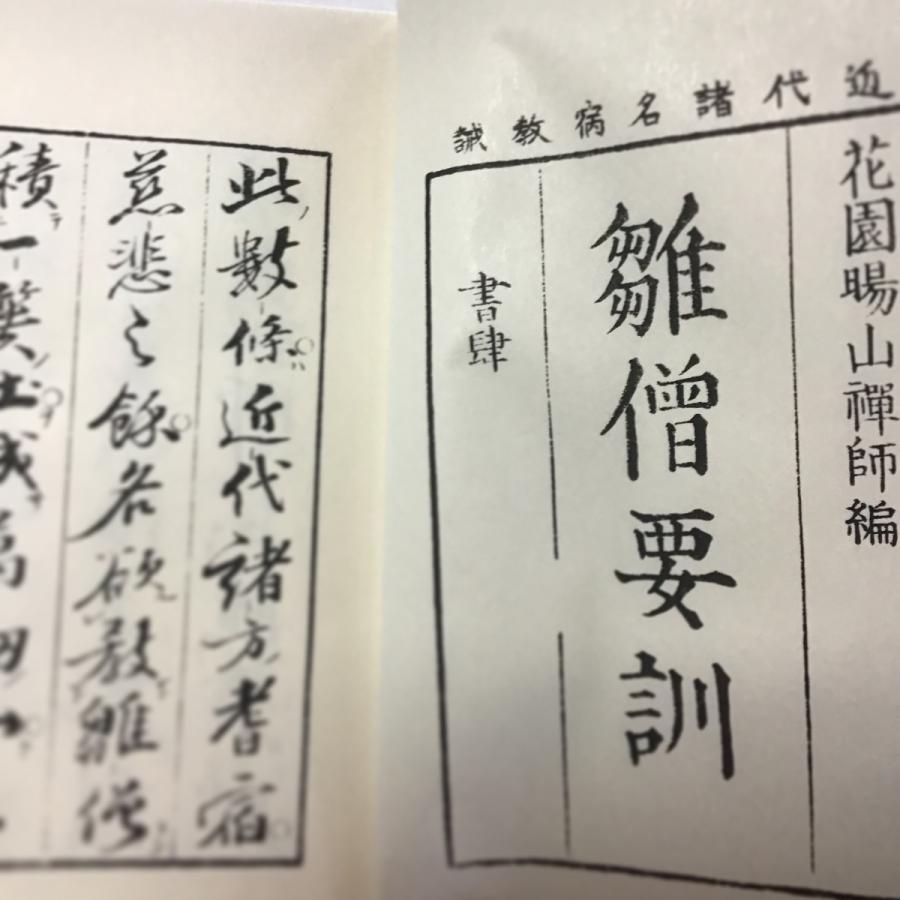 近代諸名病教誡
花園暘山禪師編
雛僧要訓
書肆
此數條近代諸方耆宿
慈悲之餘各欲教雛僧
積一簣土成